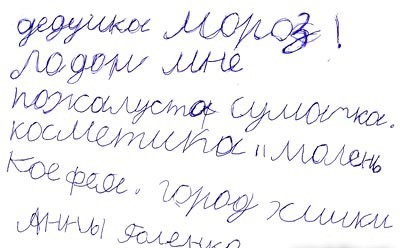 дедушка мороз!
подари мне
пожалуста сумочка.
косметика "малень
кое фея. город химки
Анны